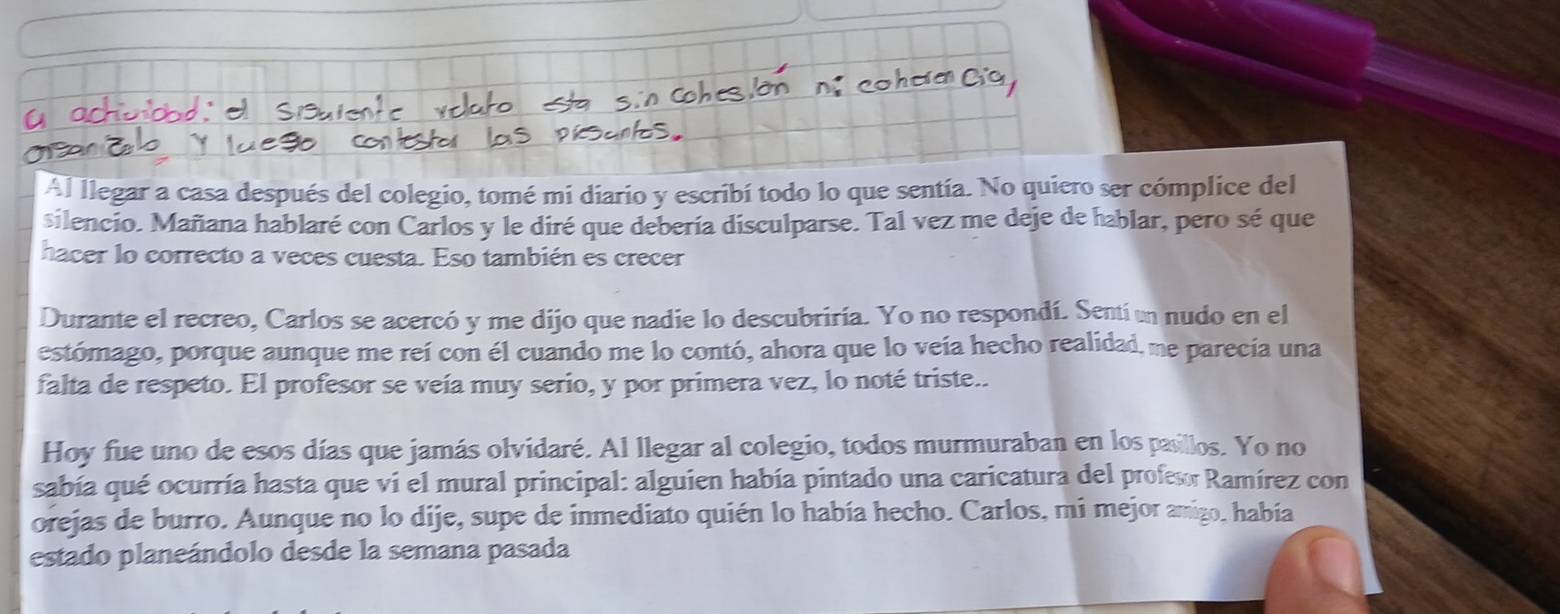 a actividad: el siguiente relato esta sin cohesión ni coherencia,
organizalo y luego contestar las preguntas.
Al llegar a casa después del colegio, tomé mi diario y escribí todo lo que sentía. No quiero ser cómplice del
silencio. Mañana hablaré con Carlos y le diré que debería disculparse. Tal vez me deje de hablar, pero sé que
hacer lo correcto a veces cuesta. Eso también es crecer
Durante el recreo, Carlos se acercó y me dijo que nadie lo descubriría. Yo no respondí. Sentí un nudo en el
estómago, porque aunque me reí con él cuando me lo contó, ahora que lo veía hecho realidad, me parecía una
falta de respeto. El profesor se veía muy serio, y por primera vez, lo noté triste..
Hoy fue uno de esos días que jamás olvidaré. Al llegar al colegio, todos murmuraban en los pasillos. Yo no
sabía qué ocurría hasta que vi el mural principal: alguien había pintado una caricatura del profesor Ramírez con
orejas de burro. Aunque no lo dije, supe de inmediato quién lo había hecho. Carlos, mi mejor amigo, había
estado planeándolo desde la semana pasada